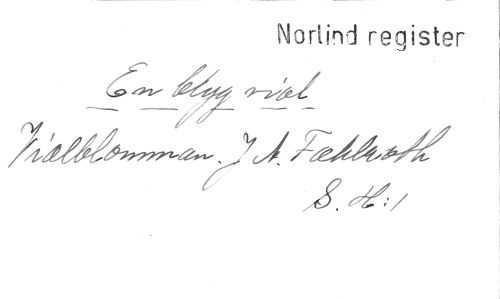 Norlind register
En blyg viol
Violblomman. J A. Fahlroth
S. H:1